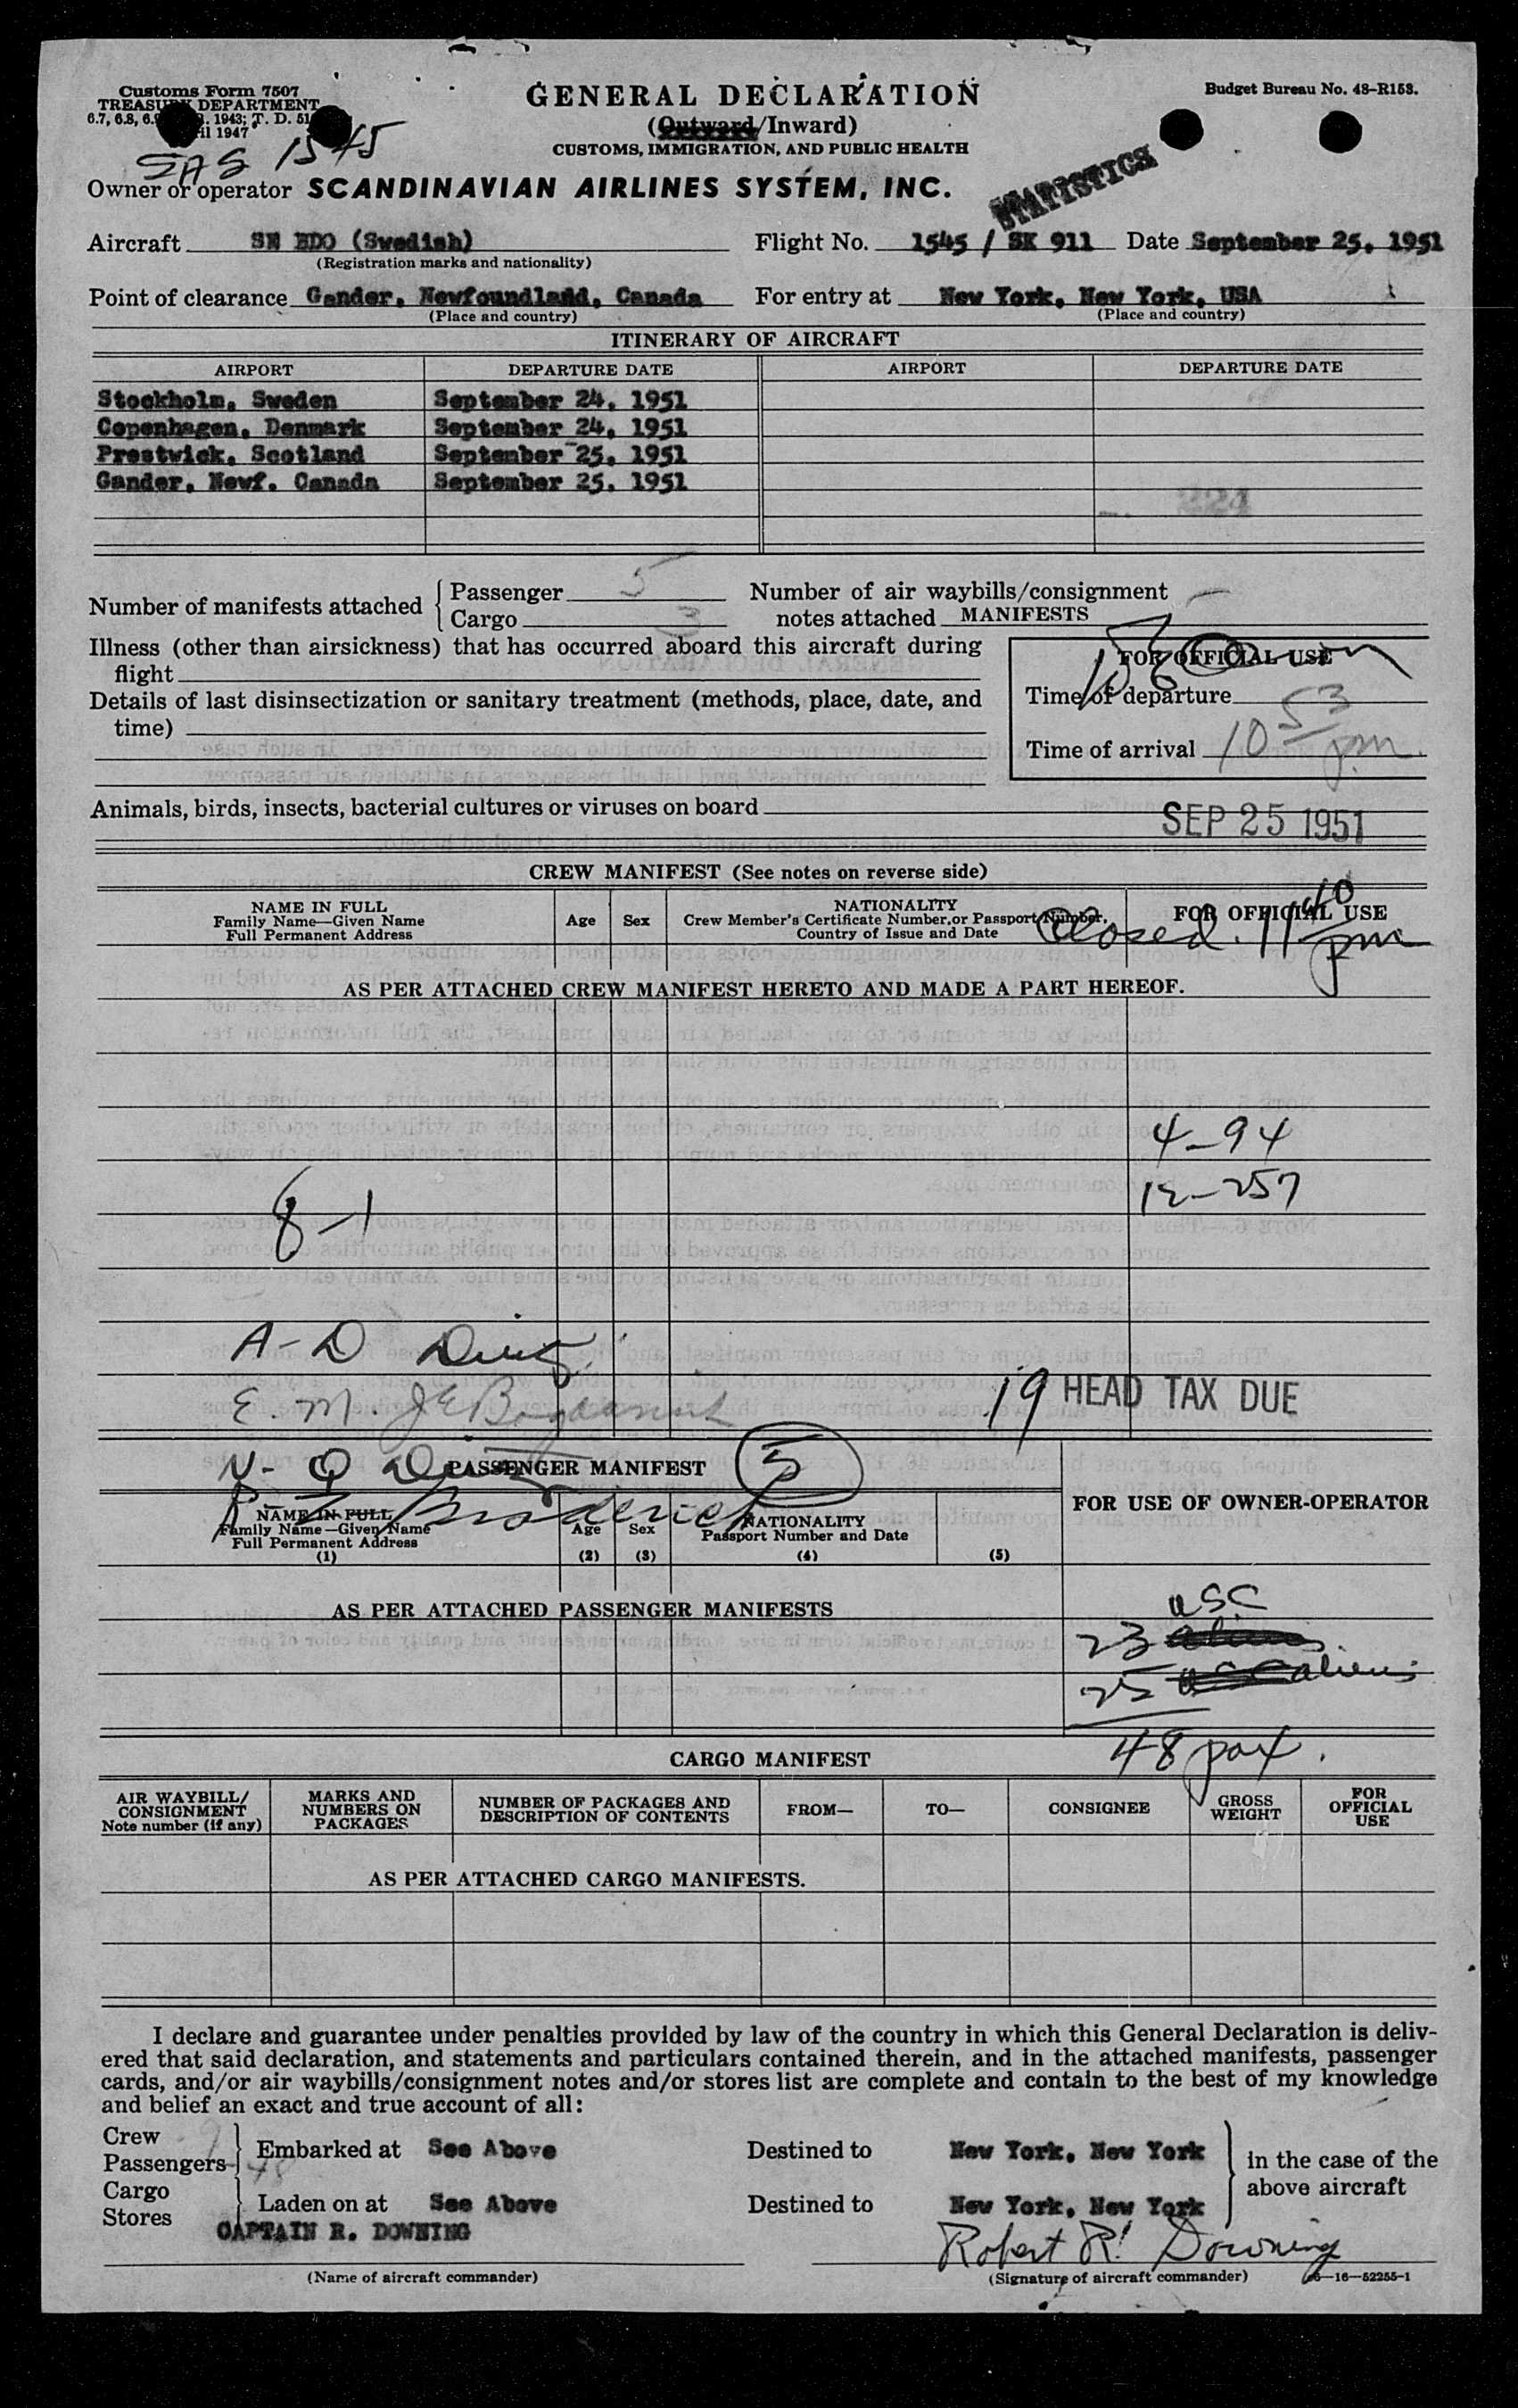 Customs Form 7507
TREASURY DEPARTMENT
1943; T. D. 51
1947
GENERAL DECLARATION
(Outward/Inward)
CUSTOMS, IMMIGRATION, AND PUBLIC HEALTH
Budget Bureau No. 48-R153.
SAS 1545
STATISTICS
Owner or operator SCANDINAVIAN AIRLINES SYSTEM, INC.
Aircraft SE BDO (Swedish) Flight No. 1545 / SK 911 Date September 25, 1951
(Registration marks and nationality)
Point of clearance Gander, Newfoundland, Canada For entry at New York, New York, USA
(Place and country) (Place and country)
ITINERARY OF AIRCRAFT
AIRPORT DEPARTURE DATE AIRPORT DEPARTURE DATE
Stockholm, Sweden September 24, 1951
Copenhagen, Denmark September 24, 1951
Prestwick, Scotland September 25, 1951
Gander, Newf. Canada September 25, 1951
224
Number of manifests attached { Passenger 5 Number of air waybills/consignment
Cargo 3 notes attached MANIFESTS
Illness (other than airsickness) that has occurred aboard this aircraft during
flight
FOR OFFICIAL USE
Details of last disinsectization or sanitary treatment (methods, place, date, and
time)
Time of departure
Time of arrival 10 53 pm.
Animals, birds, insects, bacterial cultures or viruses on board
SEP 25 1951
CREW MANIFEST (See notes on reverse side)
NAME IN FULL
Family Name—Given Name
Full Permanent Address
Age Sex
NATIONALITY
Crew Member's Certificate Number, or Passport Number,
Country of Issue and Date
FOR OFFICIAL USE
Closed. 11 40 pm
AS PER ATTACHED CREW MANIFEST HERETO AND MADE A PART HEREOF.
4-94
12-257
8-1
A-D
E. M.
19 HEAD TAX DUE
N- Q
PASSENGER MANIFEST 5
R- Z Broderick
FOR USE OF OWNER-OPERATOR
NAME IN FULL
Family Name—Given Name
Full Permanent Address
(1)
Age
(2)
Sex
(3)
NATIONALITY
Passport Number and Date
(4)
(5)
AS PER ATTACHED PASSENGER MANIFESTS
USC
23 aliens
25 USC aliens
48 pax.
CARGO MANIFEST
AIR WAYBILL/
CONSIGNMENT
Note number (if any)
MARKS AND
NUMBERS ON
PACKAGES
NUMBER OF PACKAGES AND
DESCRIPTION OF CONTENTS
FROM— TO— CONSIGNEE
GROSS
WEIGHT
FOR
OFFICIAL
USE
AS PER ATTACHED CARGO MANIFESTS.
I declare and guarantee under penalties provided by law of the country in which this General Declaration is deliv-
ered that said declaration, and statements and particulars contained therein, and in the attached manifests, passenger
cards, and/or air waybills/consignment notes and/or stores list are complete and contain to the best of my knowledge
and belief an exact and true account of all:
Crew 9
Passengers 48 Embarked at See Above Destined to New York, New York
in the case of the
above aircraft
Cargo
Stores Laden on at See Above Destined to New York, New York
CAPTAIN R. DOWNING Robert R. Downing
(Name of aircraft commander) (Signature of aircraft commander) 16—52255-1